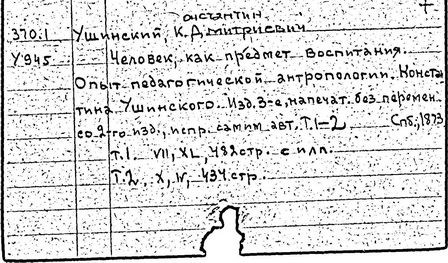 онстантин
370.1 Ушинский, К.Дмитриевич
У945 Человек, как предмет воспитания.
Опыт педагогической антропологии, Конста
тина Ушинского. Изд. 3-е, напечат. без перемен.
со 2-го изд., испр. самим авт. Т.1-2 Спб., 1873
т.1. VII, XL, 482стр. с илл.
Т.2, X, IV, 434 стр.